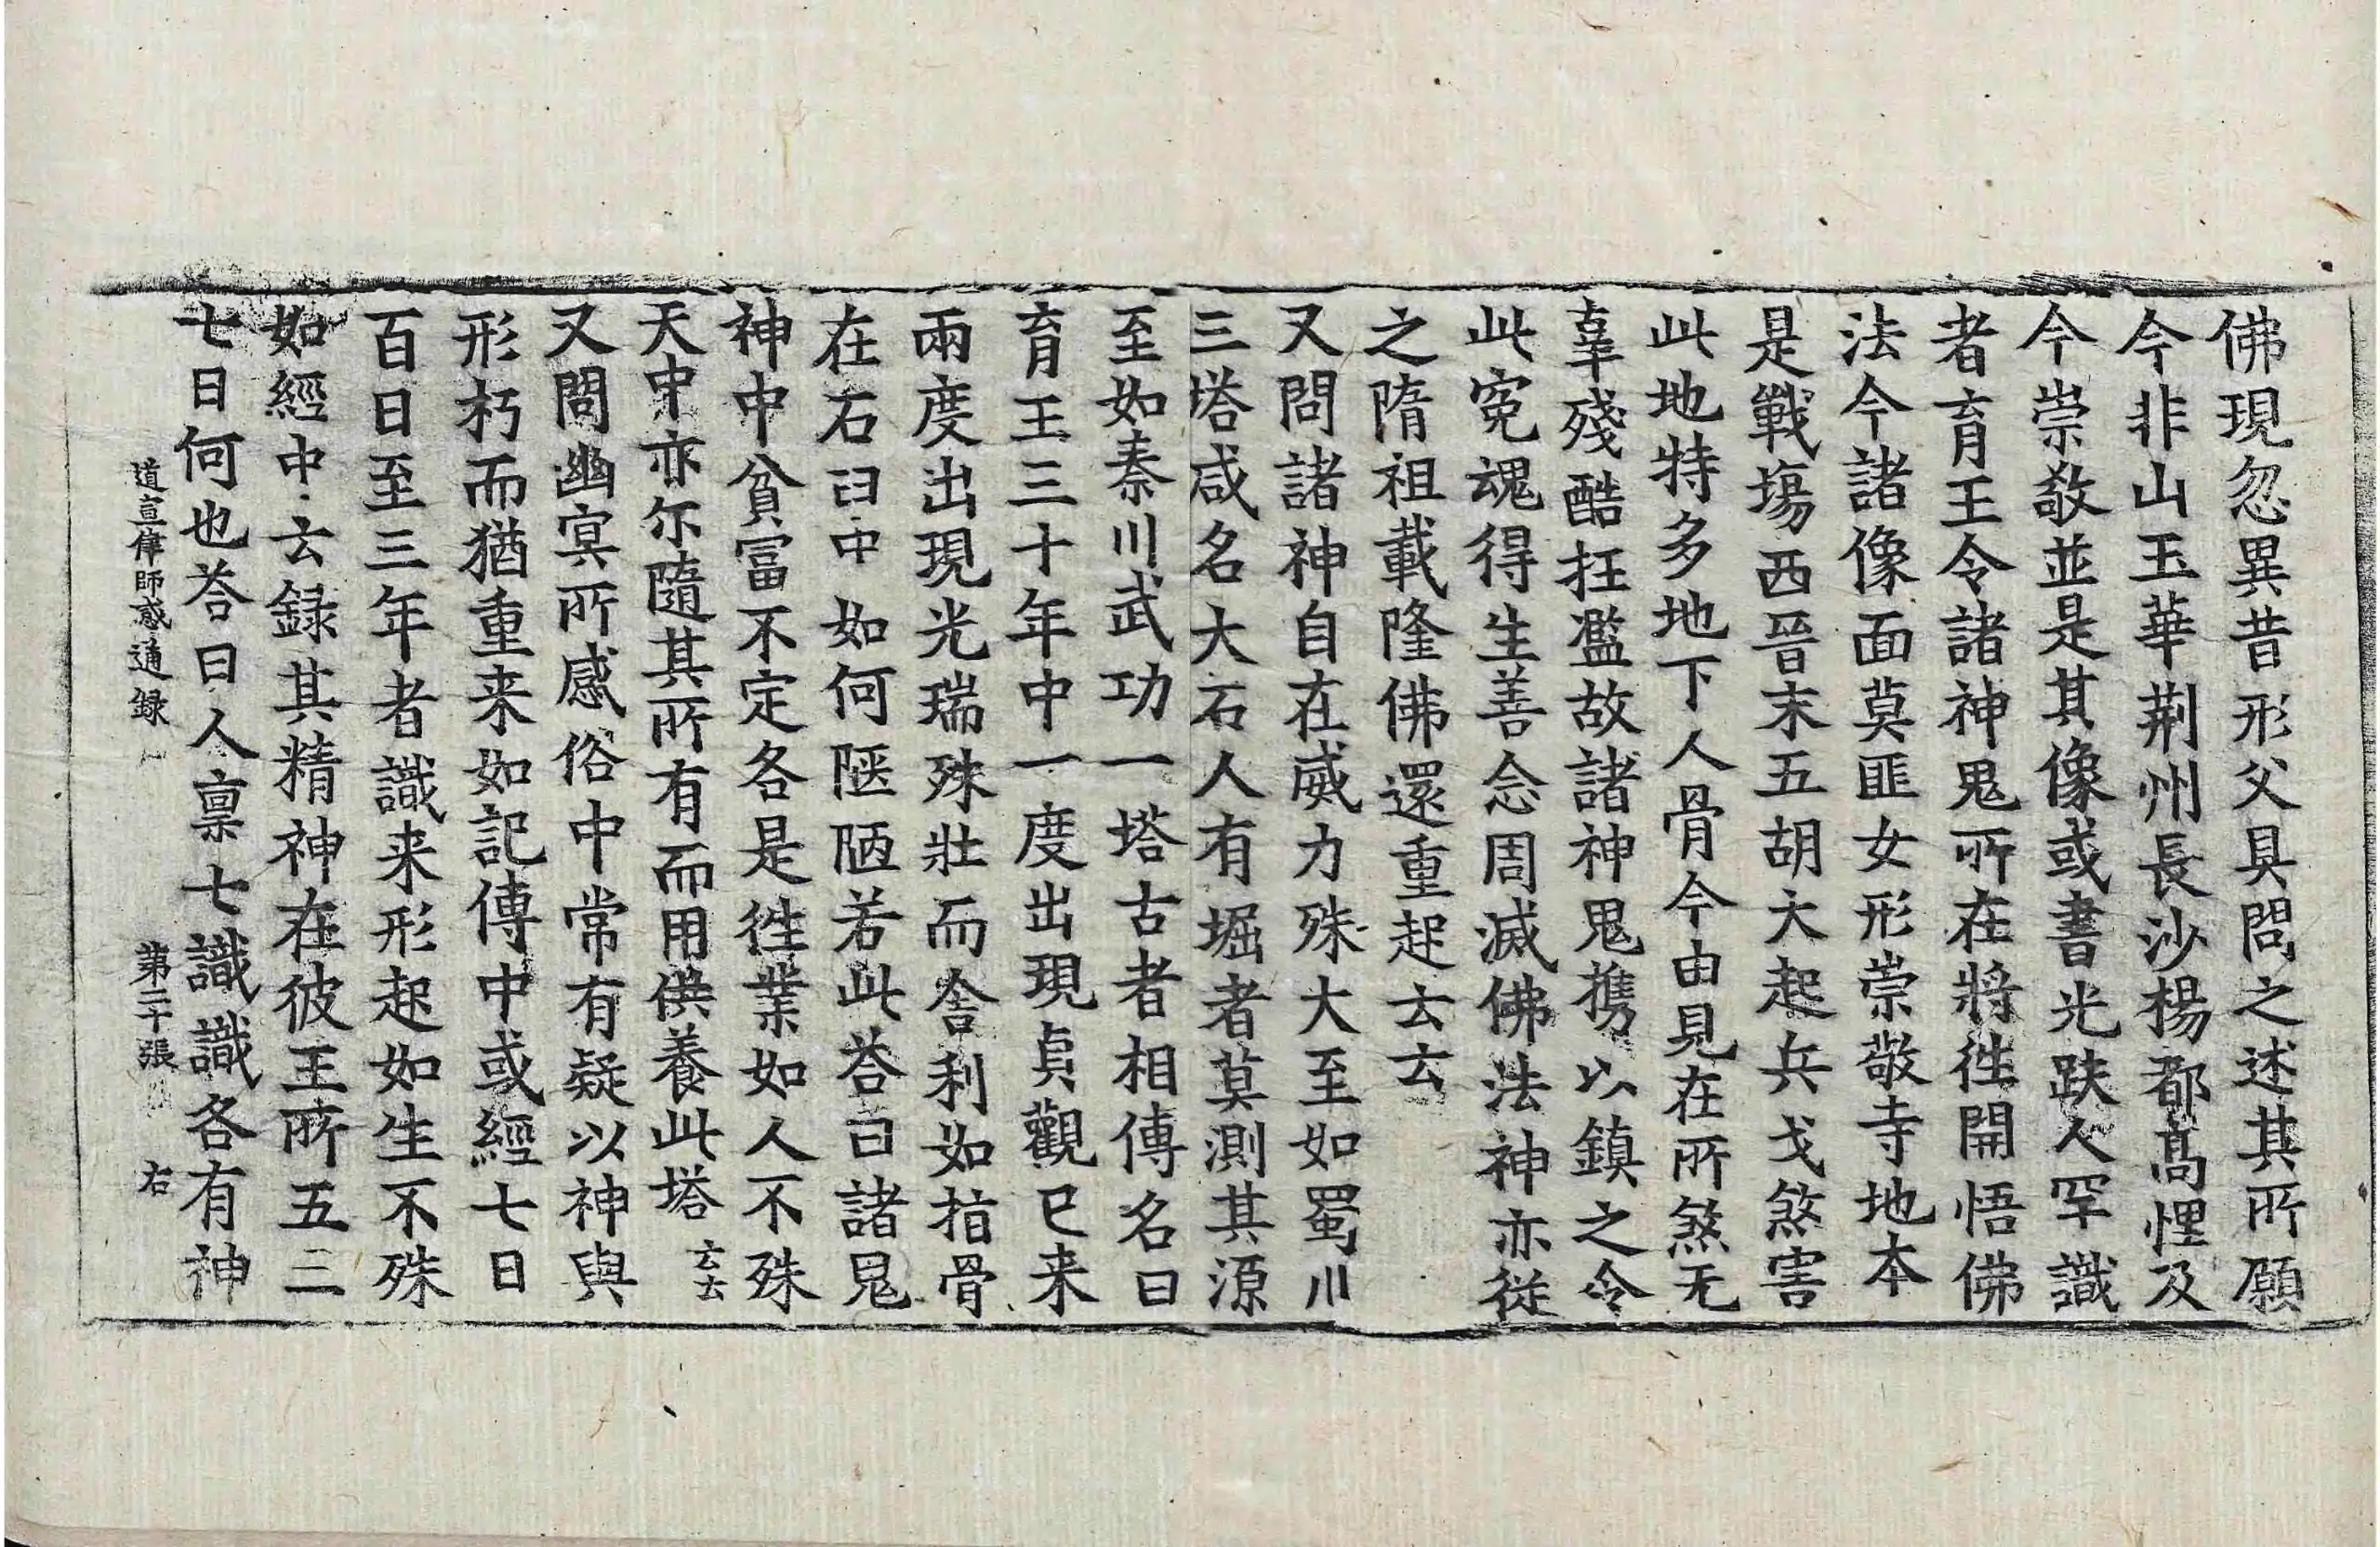 佛現忽異昔形父具問之述其所願
今非山玉華荆州長沙楊都髙悝及
今崇敬並是其像或書光趺人罕識
者育王令諸神鬼所在將徃開悟佛
法今諸像面莫匪女形崇敬寺地本
是戰塲西晉末五胡大起兵戈煞害
此地特多地下人骨今由見在所煞无
辜殘酷抂濫故諸神鬼携以鎮之令
此寃魂得生善念周滅佛法神亦從
之隋祖載隆佛還重起云云
又問諸神自在威力殊大至如蜀川
三塔咸名大石人有堀者莫測其源
至如秦川武功一塔古者相傳名曰
育王三十年中一度出現貞觀已来
兩度出現光瑞殊壯而舍利如指骨
在石臼中如何陋陋若此荅曰諸鬼
神中貧富不定各是徃業如人不殊
天中亦尓隨其所有而用供養此塔云云
又問幽冥所感俗中常有疑以神與
形朽而猶重来如記傳中或經七日
百日至三年者識来形起如生不殊
如經中云録其精神在彼王所五三
七日何也荅曰人禀七識識各有神
道宣律師感通録 第二十張 右